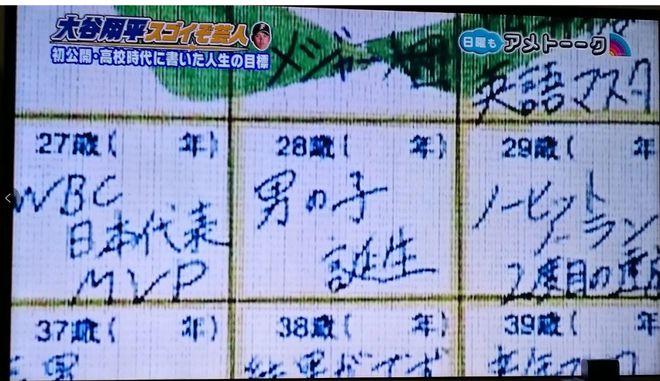 大谷翔平スゴイぞ芸人
日曜も アメトーーク
初公開・高校時代に書いた人生の目標
メジャー
英語マスタ
27歳(　　年)
28歳(　　年)
29歳(　　年
WBC
日本代表
MVP
男の子
誕生
ノーヒット
ノーラン
2度目の達成
37歳(　　年)
38歳(　　年)
39歳(　　年